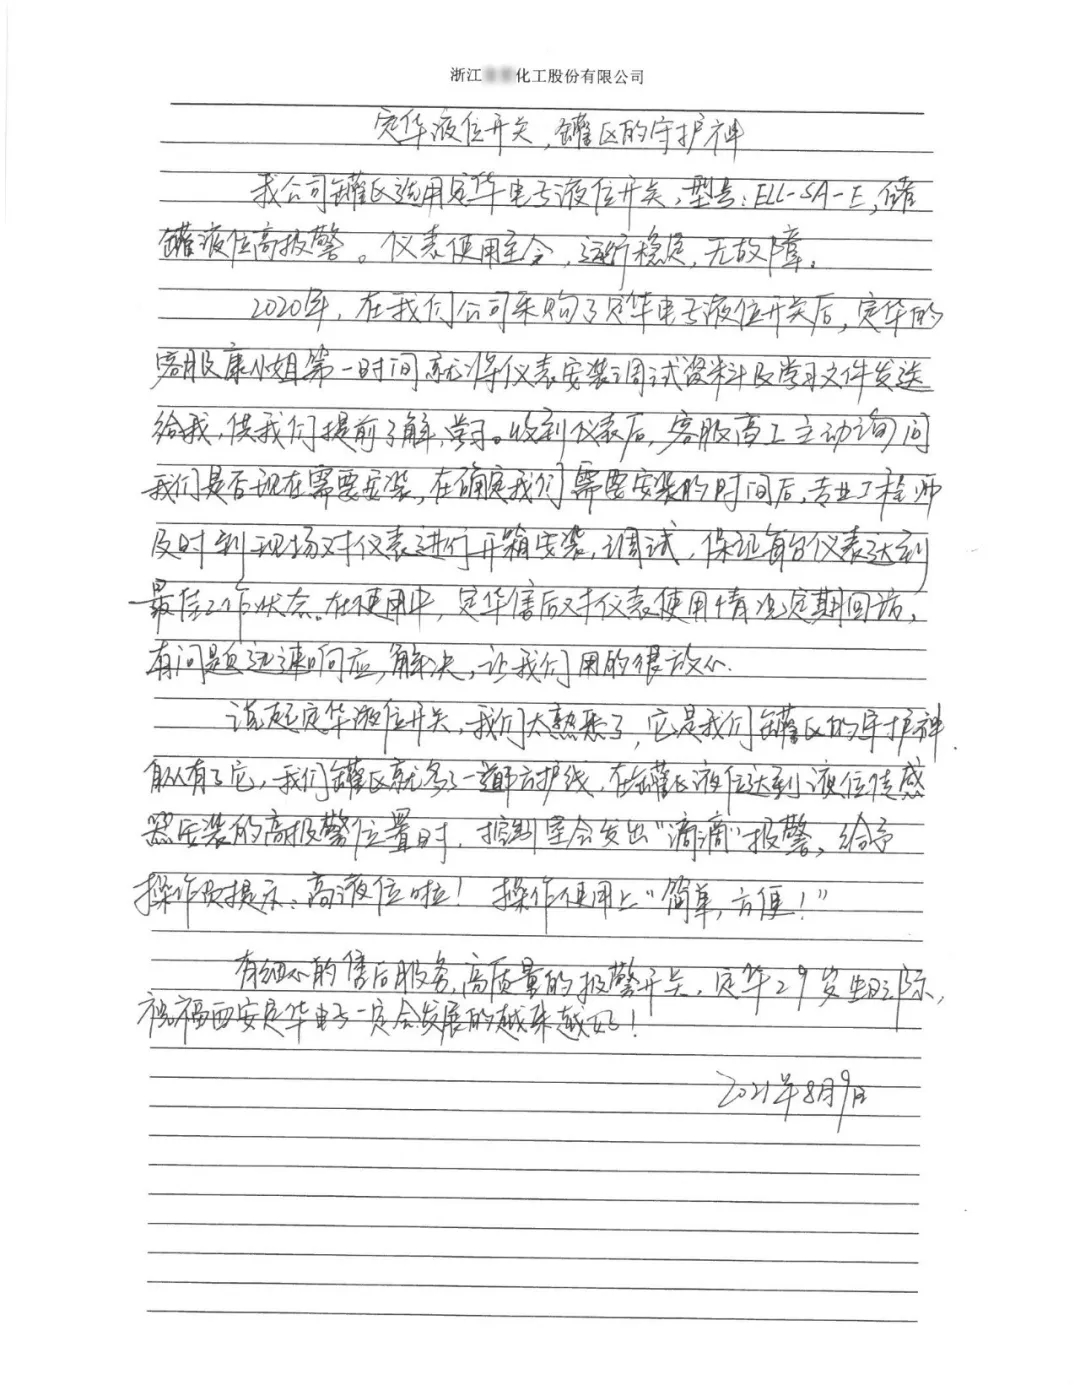 浙江 化工股份有限公司
定华液位开关,罐区的守护神
我公司罐区选用定华电子液位开关,型号:ELL-SA-E,储
罐液位高报警。仪表使用至今,运行稳定,无故障。
2020年,在我们公司采购了定华电子液位开关后,定华的
客服康小姐第一时间就将仪表安装调试资料及学习文件发送
给我,供我们提前了解,学习。收到仪表后,客服高工主动询问
我们是否现在需要安装,在确定我们需要安装的时间后,专业工程师
及时到现场对仪表进行开箱安装,调试,保证每台仪表达到
最佳工作状态。在使用中,定华售后对仪表使用情况定期回访,
有问题迅速响应,解决,让我们用的很放心.
说起定华液位开关,我们太熟悉了,它是我们罐区的守护神.
自从有了它,我们罐区就多了一道防护线,在罐区液位达到液位传感
器安装的高报警位置时,控制室会发出“滴滴”报警,给予
操作员提示:高液位啦!操作使用上“简单,方便!”
有细心的售后服务,高质量的报警开关,定华29岁生日之际,
祝福西安定华电子一定会发展的越来越好!
2021年8月9日